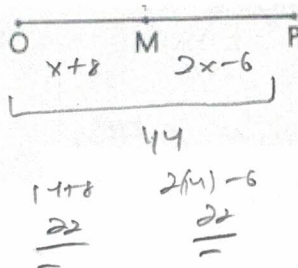 O M P
x+8 2x-6
44
14+8 2(14)-6
22 22